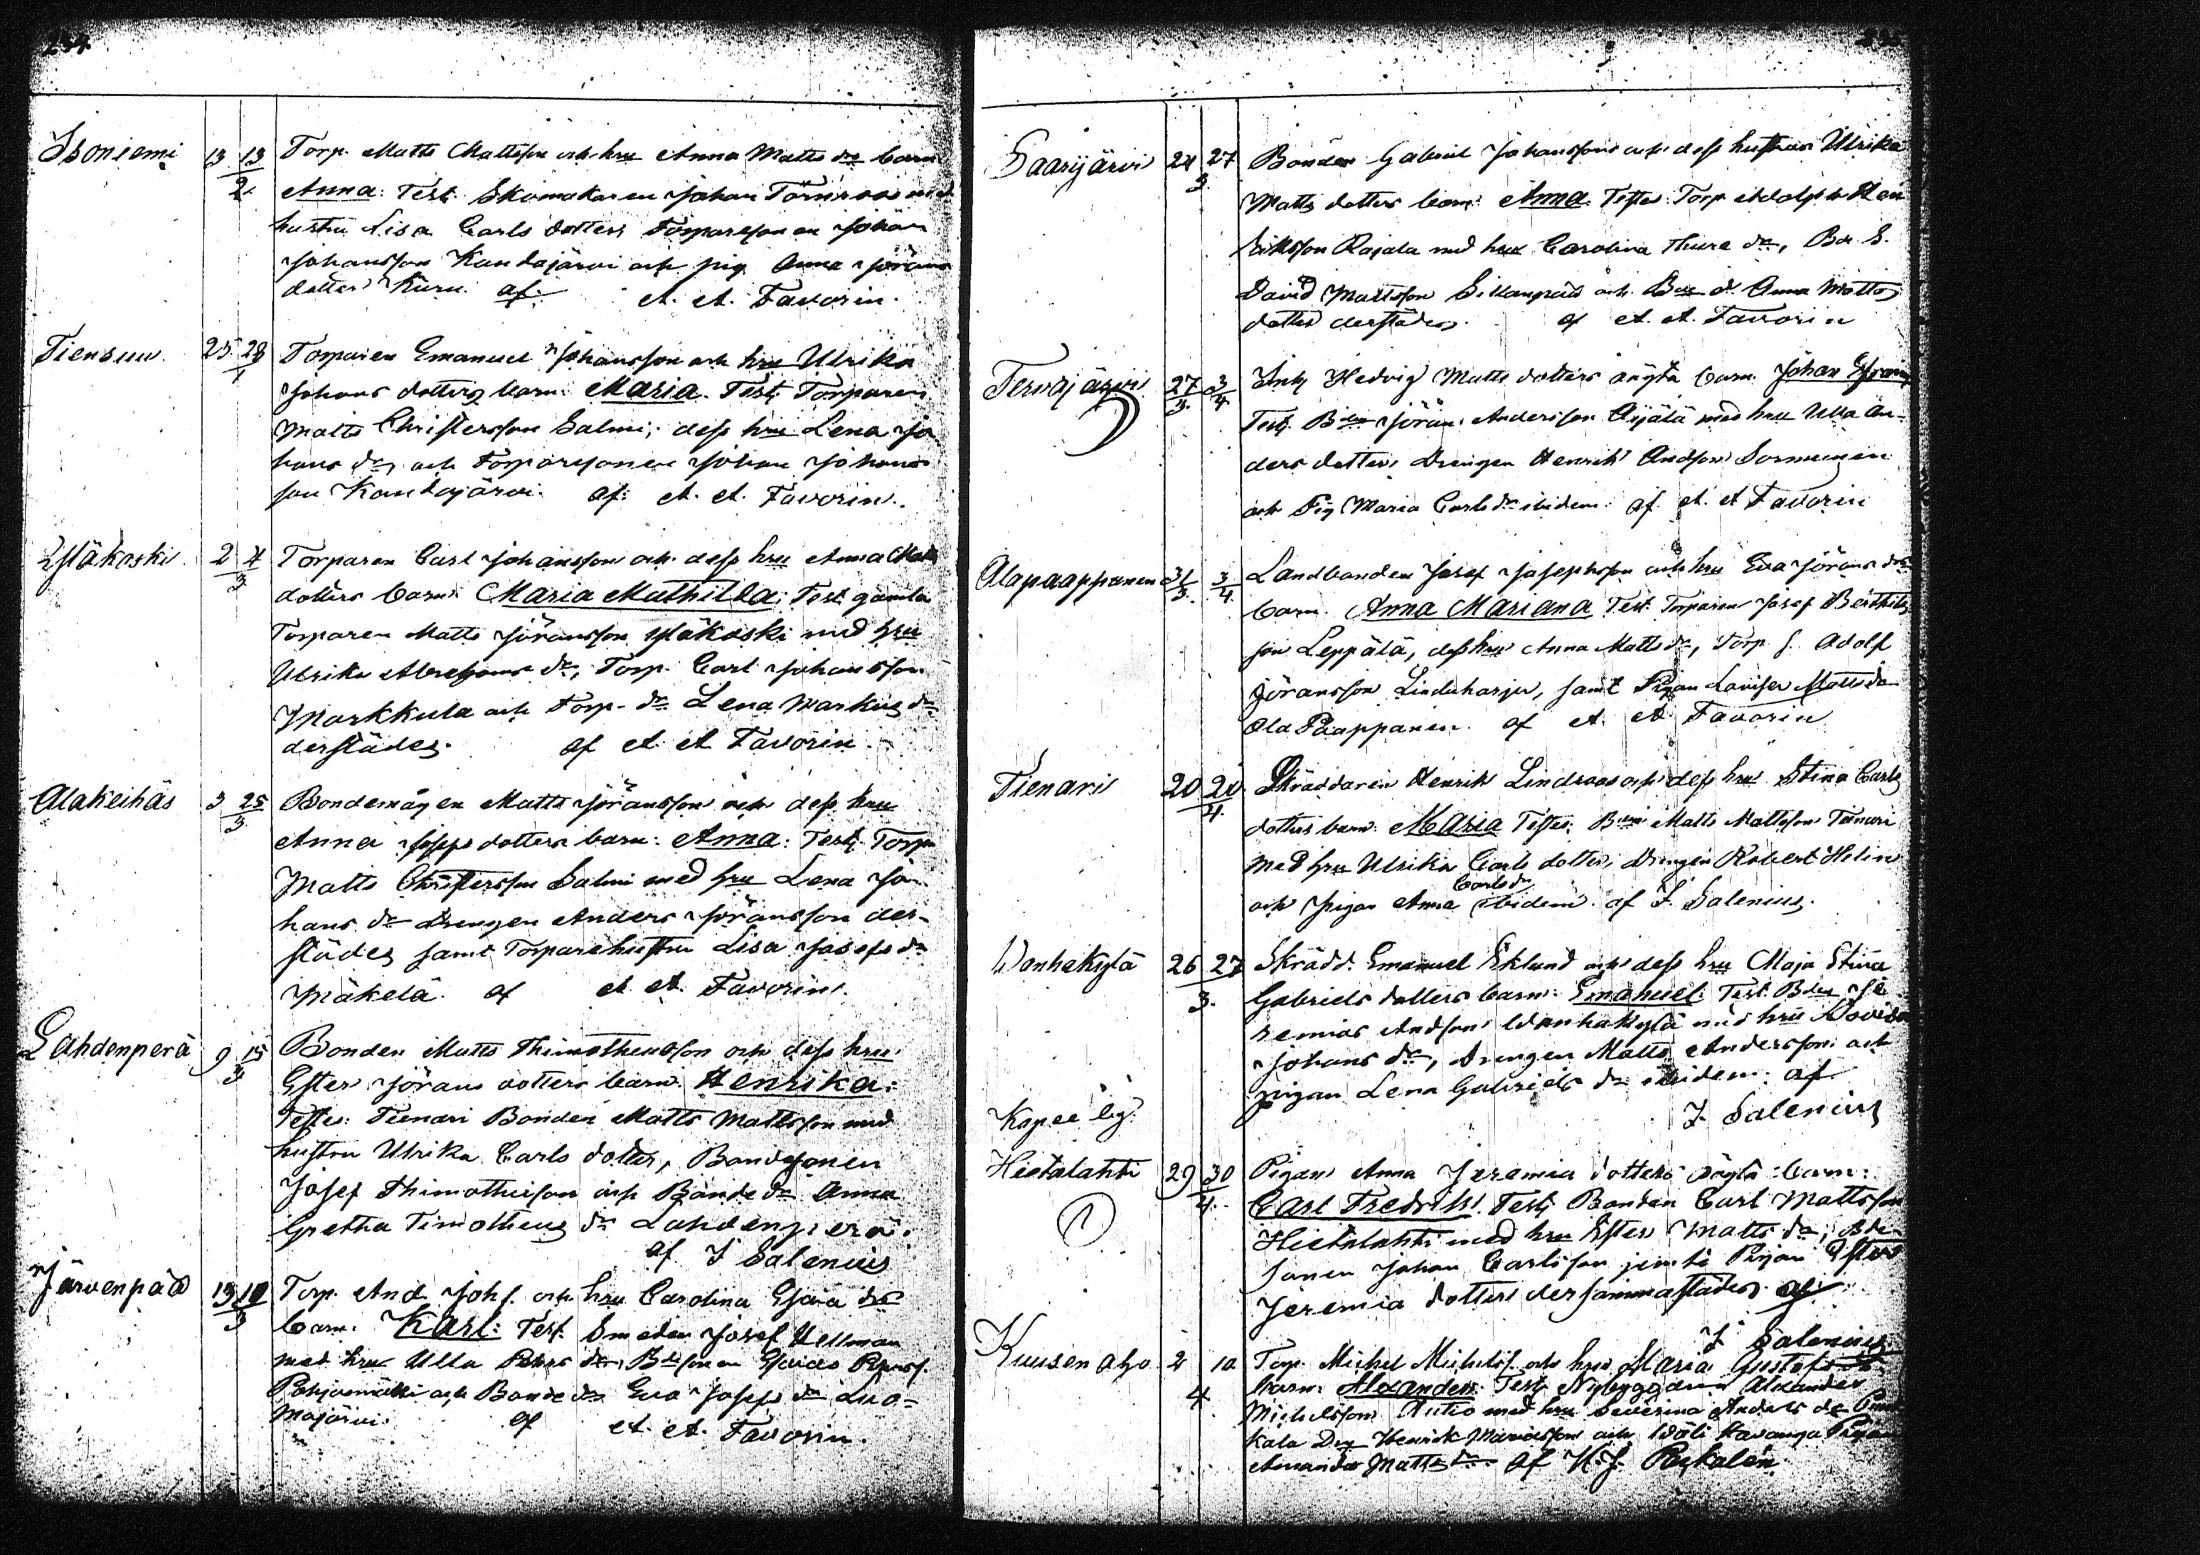 234
Isoniemi 13 13/2 Torp. Matts Mattsson och hru Anna Matts dr barn
Anna: Test. Skomakaren Johan Törnroos med
hustru Lisa Carls dotter, Torparesonen Johan
Johansson Kandajärvi och pig. Anna Jörans
dotter Kuru. af. A. A. Favorin.
Tiensuu 25 28/1 Torparen Emanuel Johansson och hru Ulrika
Johans dotters barn: Maria. Test: Torparen
Matts Christersson Salmi, dess hru Lena Jo
hans dr, och Torparesonen Johan Johans
son Kandajärvi. af: A. A. Favorin.
Yläkoski 2 4/3 Torparen Carl Johansson och dess hru Anna Matts
dotters barn: Maria Mathilda: Test. gamla
Torparen Matts Jöransson Yläkoski med hru
Ulrika Abrahams dr, Torp. Carl Johansson
Markkula och Torp. dr Lena Markus dr
derstädes. af A. A. Favorin.
Alakeihäs 3 25/3 Bondemågen Matts Jöransson och dess hru
Anna Josefs dotters barn: Anna: Test: Torp
Matts Christersson Salmi med hru Lena Jo
hans dr Drengen Anders Jöransson der-
städes samt Torparehustru Lisa Josefs dr
Mäkelä. af A. A. Favorin.
Lahdenperä 9 15/3 Bonden Matts Thimotheusson och dess hru
Ester Jörans dotters barn: Henrika:
Testes: Tienari Bonden Matts Mattsson med
hustru Ulrika Carls dotter, Bondesonen
Josef Thimotheisson och Bonde dr Anna
Gretha Timotheus dr Lahdenperä.
af J Salenius
Järvenpää 19 19/3 Torp. And. Joh s. och hru Carolina Esaia dr
barn. Karl: Test. Smeden Josef Hellman
med hru Ulla Petters dr, Bdesonen Esaias
Pohjasmäki och Bonde dr Eva Josefs dr Luo=
majärvi. af A. A. Favorin.
Saarijärvi 24 27/3 Bonden Gabriel Johansson och dess hustru Ulrika
Matts dotters barn: Anna. Testes: Torp Adolph Hen
riksson Rajala med hru Carolina Thure dr, Bo. S.
David Mattsson Sillanpää och Bde d. Anna Matts
dotter derstädes. af A. A. Favorin
Tervajärvi 27/3 3/4 Inh. Hedvig Matts dotters oägta barn Johan Efraim
Test. Bden Jöran Andersson Äijälä med hru Ulla An-
ders dotter, Drengen Henrik Andson Sormunen
och Pig Maria Carls dr ibidem. af. A. A Favorin
Alapaappanen 31/3 3/4 Landbonden Josef Josephsson och hru Eva Jörans dr
barn. Anna Mariana Test. Torparen Josef Berthils
son Leppälä, dess hru Anna Matts dr, Torp s. Adolf
Jöransson Linduharju, samt Pigan Lovisa Matts dr
Ala Paappanen. af A. A Favorin
Tienari 20 20/4 Skräddaren Henrik Lindroos och dess hru Stina Carls
dotters barn: Maria Testes: Bden Matts Mattsson Tienari
med hru Ulrika Carls dotter, Drengen Robert Helin
och pigan Anna Carls dr ibidem. af J. Salenius.
Wanhakylä 26 27/3 Skrädd. Emanuel Eklund och dess hru Maja Stina
Gabriels dotters barn: Emanuel: Test. Bden Je
remias Andson Wanhakylä med hru Lovisa
Johans dr, Drengen Matts Andersson och
pigan Lena Gabriels dr ibidem: af
J. Salenius
Kapee by.
Hietalahti 29 30/4 Pigan Anna Jeremia dotters oägta barn:
Carl Fredrik! Test: Bonden Carl Mattsson
Hietalahti med hru Ester Matts dr, Bde-
sonen Johan Carlsson jemte Pigan Ester
Jeremia dotter dersammastädes. af.
J Salenius
Kuusen aho 2 10/4 Torp. Michel Michelss. och hru Maria Gustafs dr
barn: Alexander: Test: Nybyggaren Alexander
Michelsson Autio med hru Severina Anders dr
kala Drg Henrik Mariasson och Pigan
Amanda Matts dr af K. J. Reykalén.